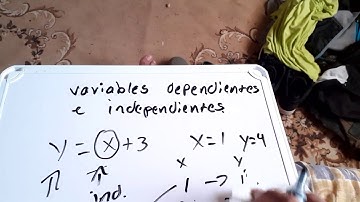 variables dependientes
e independientes
y = x + 3 x=1 y=4
x y
π π 1 →
ind.